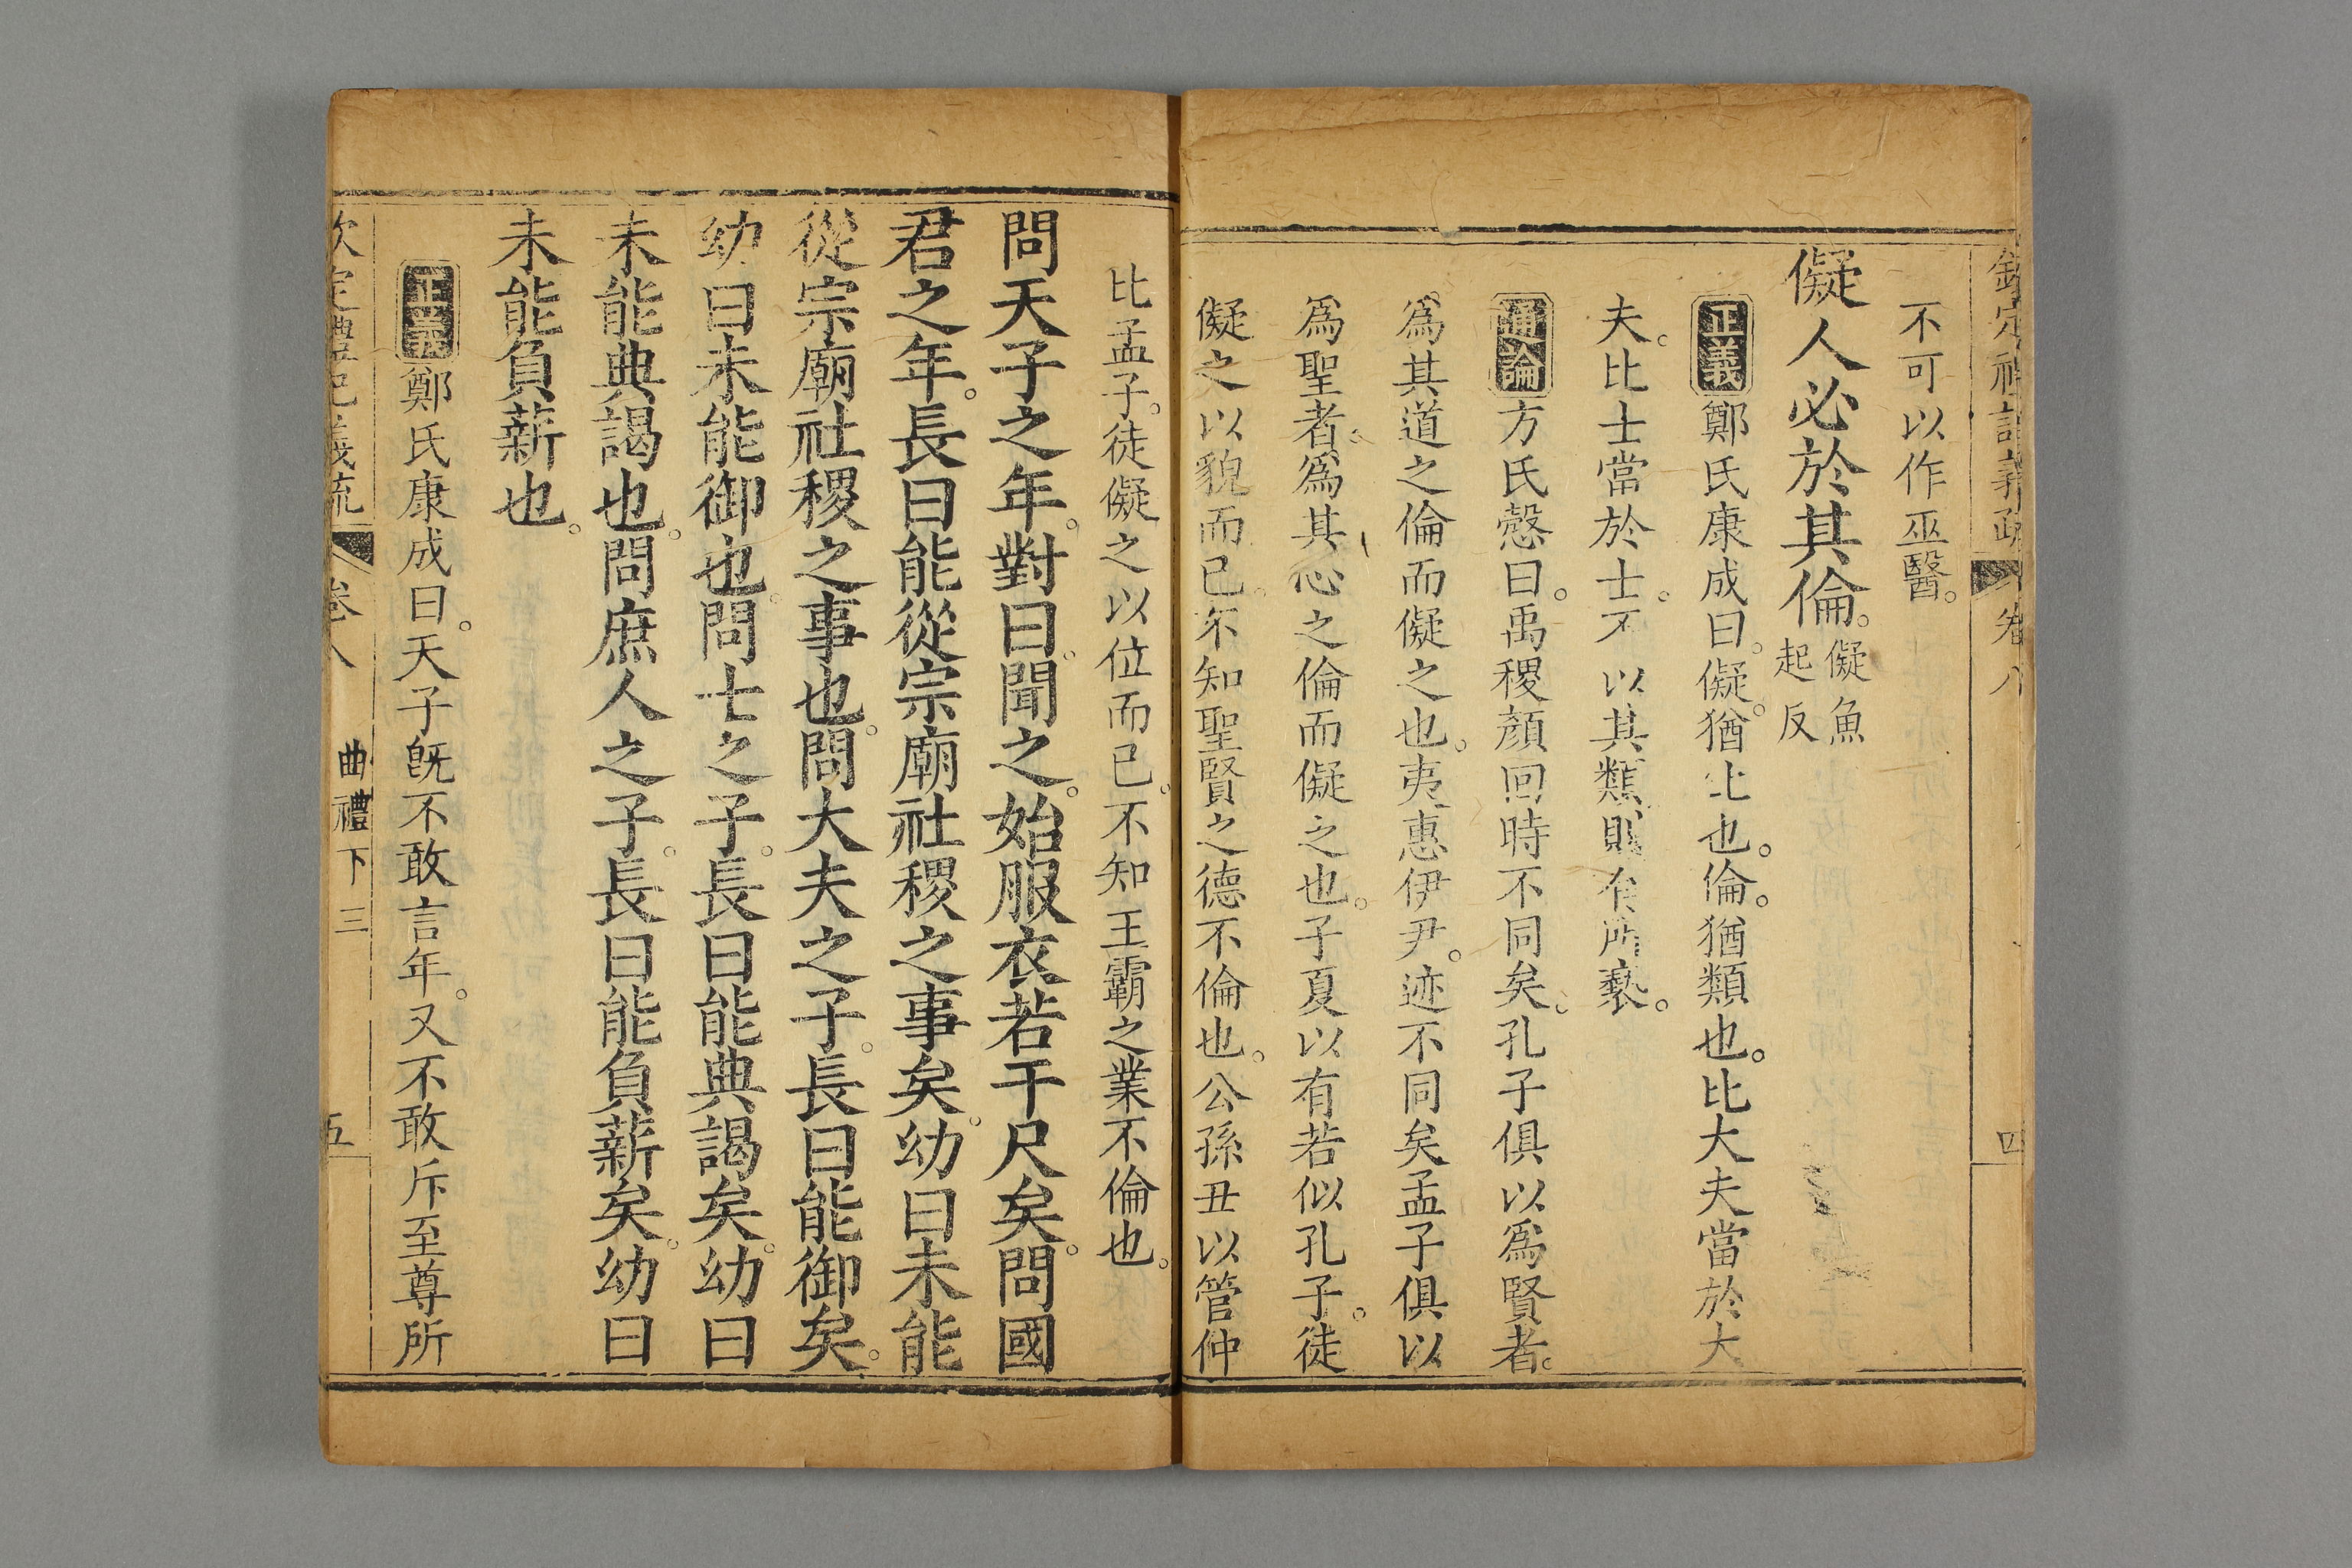 欽定禮記義疏 卷八 四
不可以作巫醫。
儗人必於其倫。儗魚起反
正義鄭氏康成曰。儗。猶比也。倫。猶類也。比大夫當於大
夫。比士當於士。不以其類。則有所褻。
通論方氏慤曰。禹稷顏回時不同矣。孔子俱以爲賢者。
爲其道之倫而儗之也。夷惠伊尹。迹不同矣孟子俱以
爲聖者。爲其心之倫而儗之也。子夏以有若似孔子。徒
儗之以貌而已。不知聖賢之德不倫也。公孫丑以管仲
比孟子。徒儗之以位而已。不知王霸之業不倫也。
問天子之年。對曰。聞之。始服衣若干尺矣。問國
君之年。長曰能從宗廟社稷之事矣。幼曰未能
從宗廟社稷之事也。問大夫之子。長曰能御矣。
幼曰未能御也。問士之子。長曰能典謁矣。幼曰
未能典謁也。問庶人之子。長曰能負薪矣。幼曰
未能負薪也。
正義鄭氏康成曰。天子旣不敢言年。又不敢斥至尊所
欽定禮記義疏 卷八 曲禮下三 五